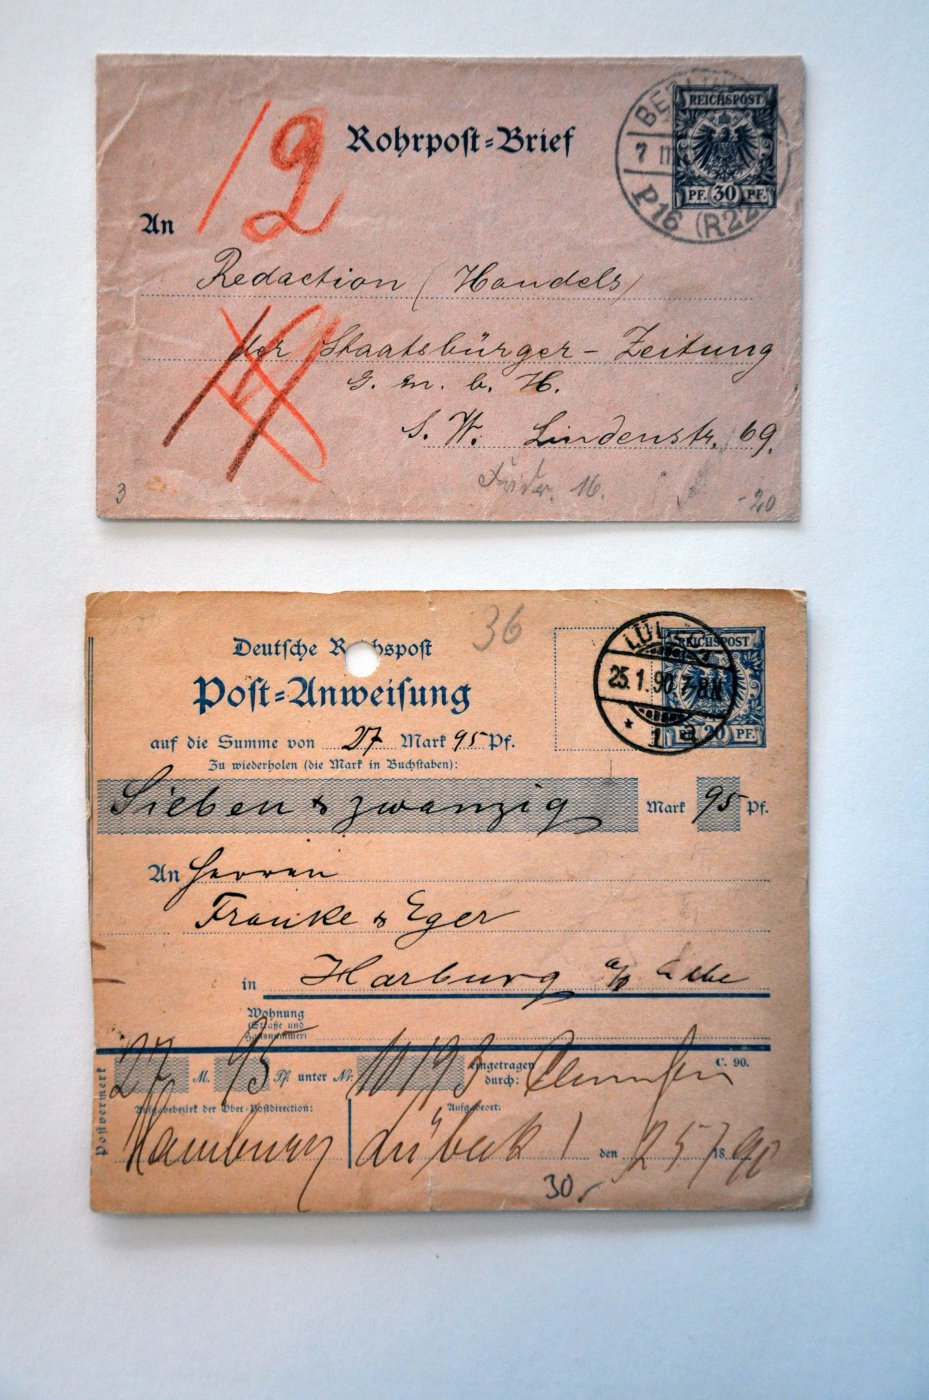 Rohrpost-Brief
REICHSPOST
PF. 30 PF.
7
P16 (R22
12
An
Redaction (Handels)
der Staatsbürger-Zeitung
G. m. b. H.
S. W. Lindenstr. 69.
16.
3
-20
36
Deutsche Reichspost
Post-Anweisung
REICHSPOST
20 PF.
25.1.90.7-8N.
* 1
auf die Summe von 27 Mark 95 Pf.
Zu wiederholen (die Mark in Buchstaben):
Sieben & zwanzig Mark 95 Pf.
An Herren
Franke & Eger
in Harburg a/d Elbe
Wohnung
(Straße und
Hausnummer)
Postvermerk
27 M. 95 Pf. unter Nr. eingetragen durch:
C. 90.
Aufgabebezirk der Ober-Postdirection:
Aufgabeort:
Hamburg Lübeck 1 den 25 1 1890
30